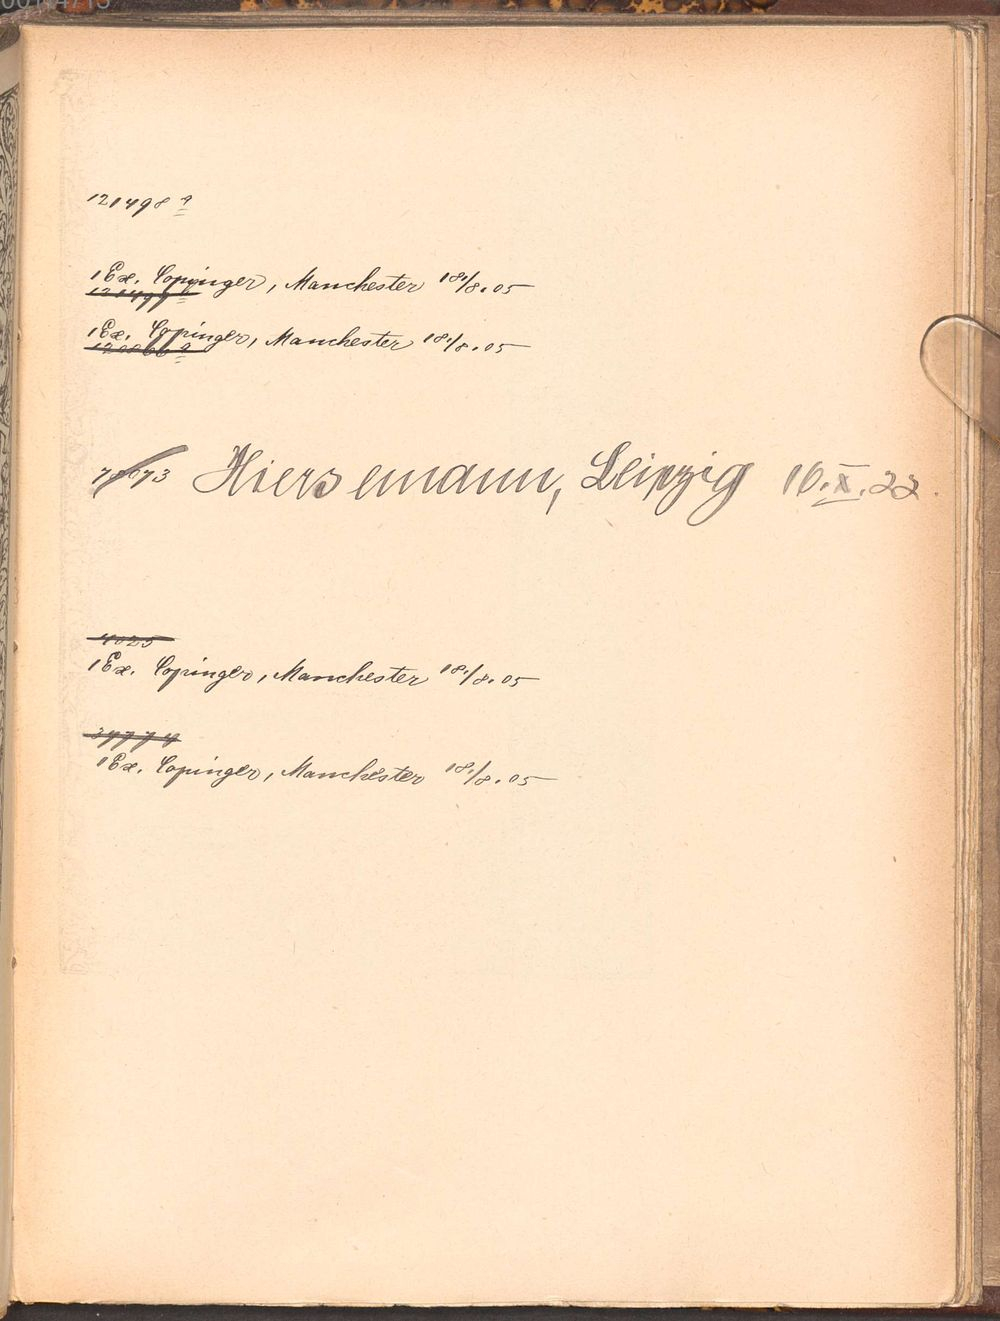 121498 a
1 Ex. Copinger, Manchester 18./8.05
121499 a
1 Ex. Copinger, Manchester 18./8.05
120866 a
78673 Hiersemann, Leipzig 10.X.22.
4025
1 Ex. Copinger, Manchester 18./8.05
39774
1 Ex. Copinger, Manchester 18./8.05